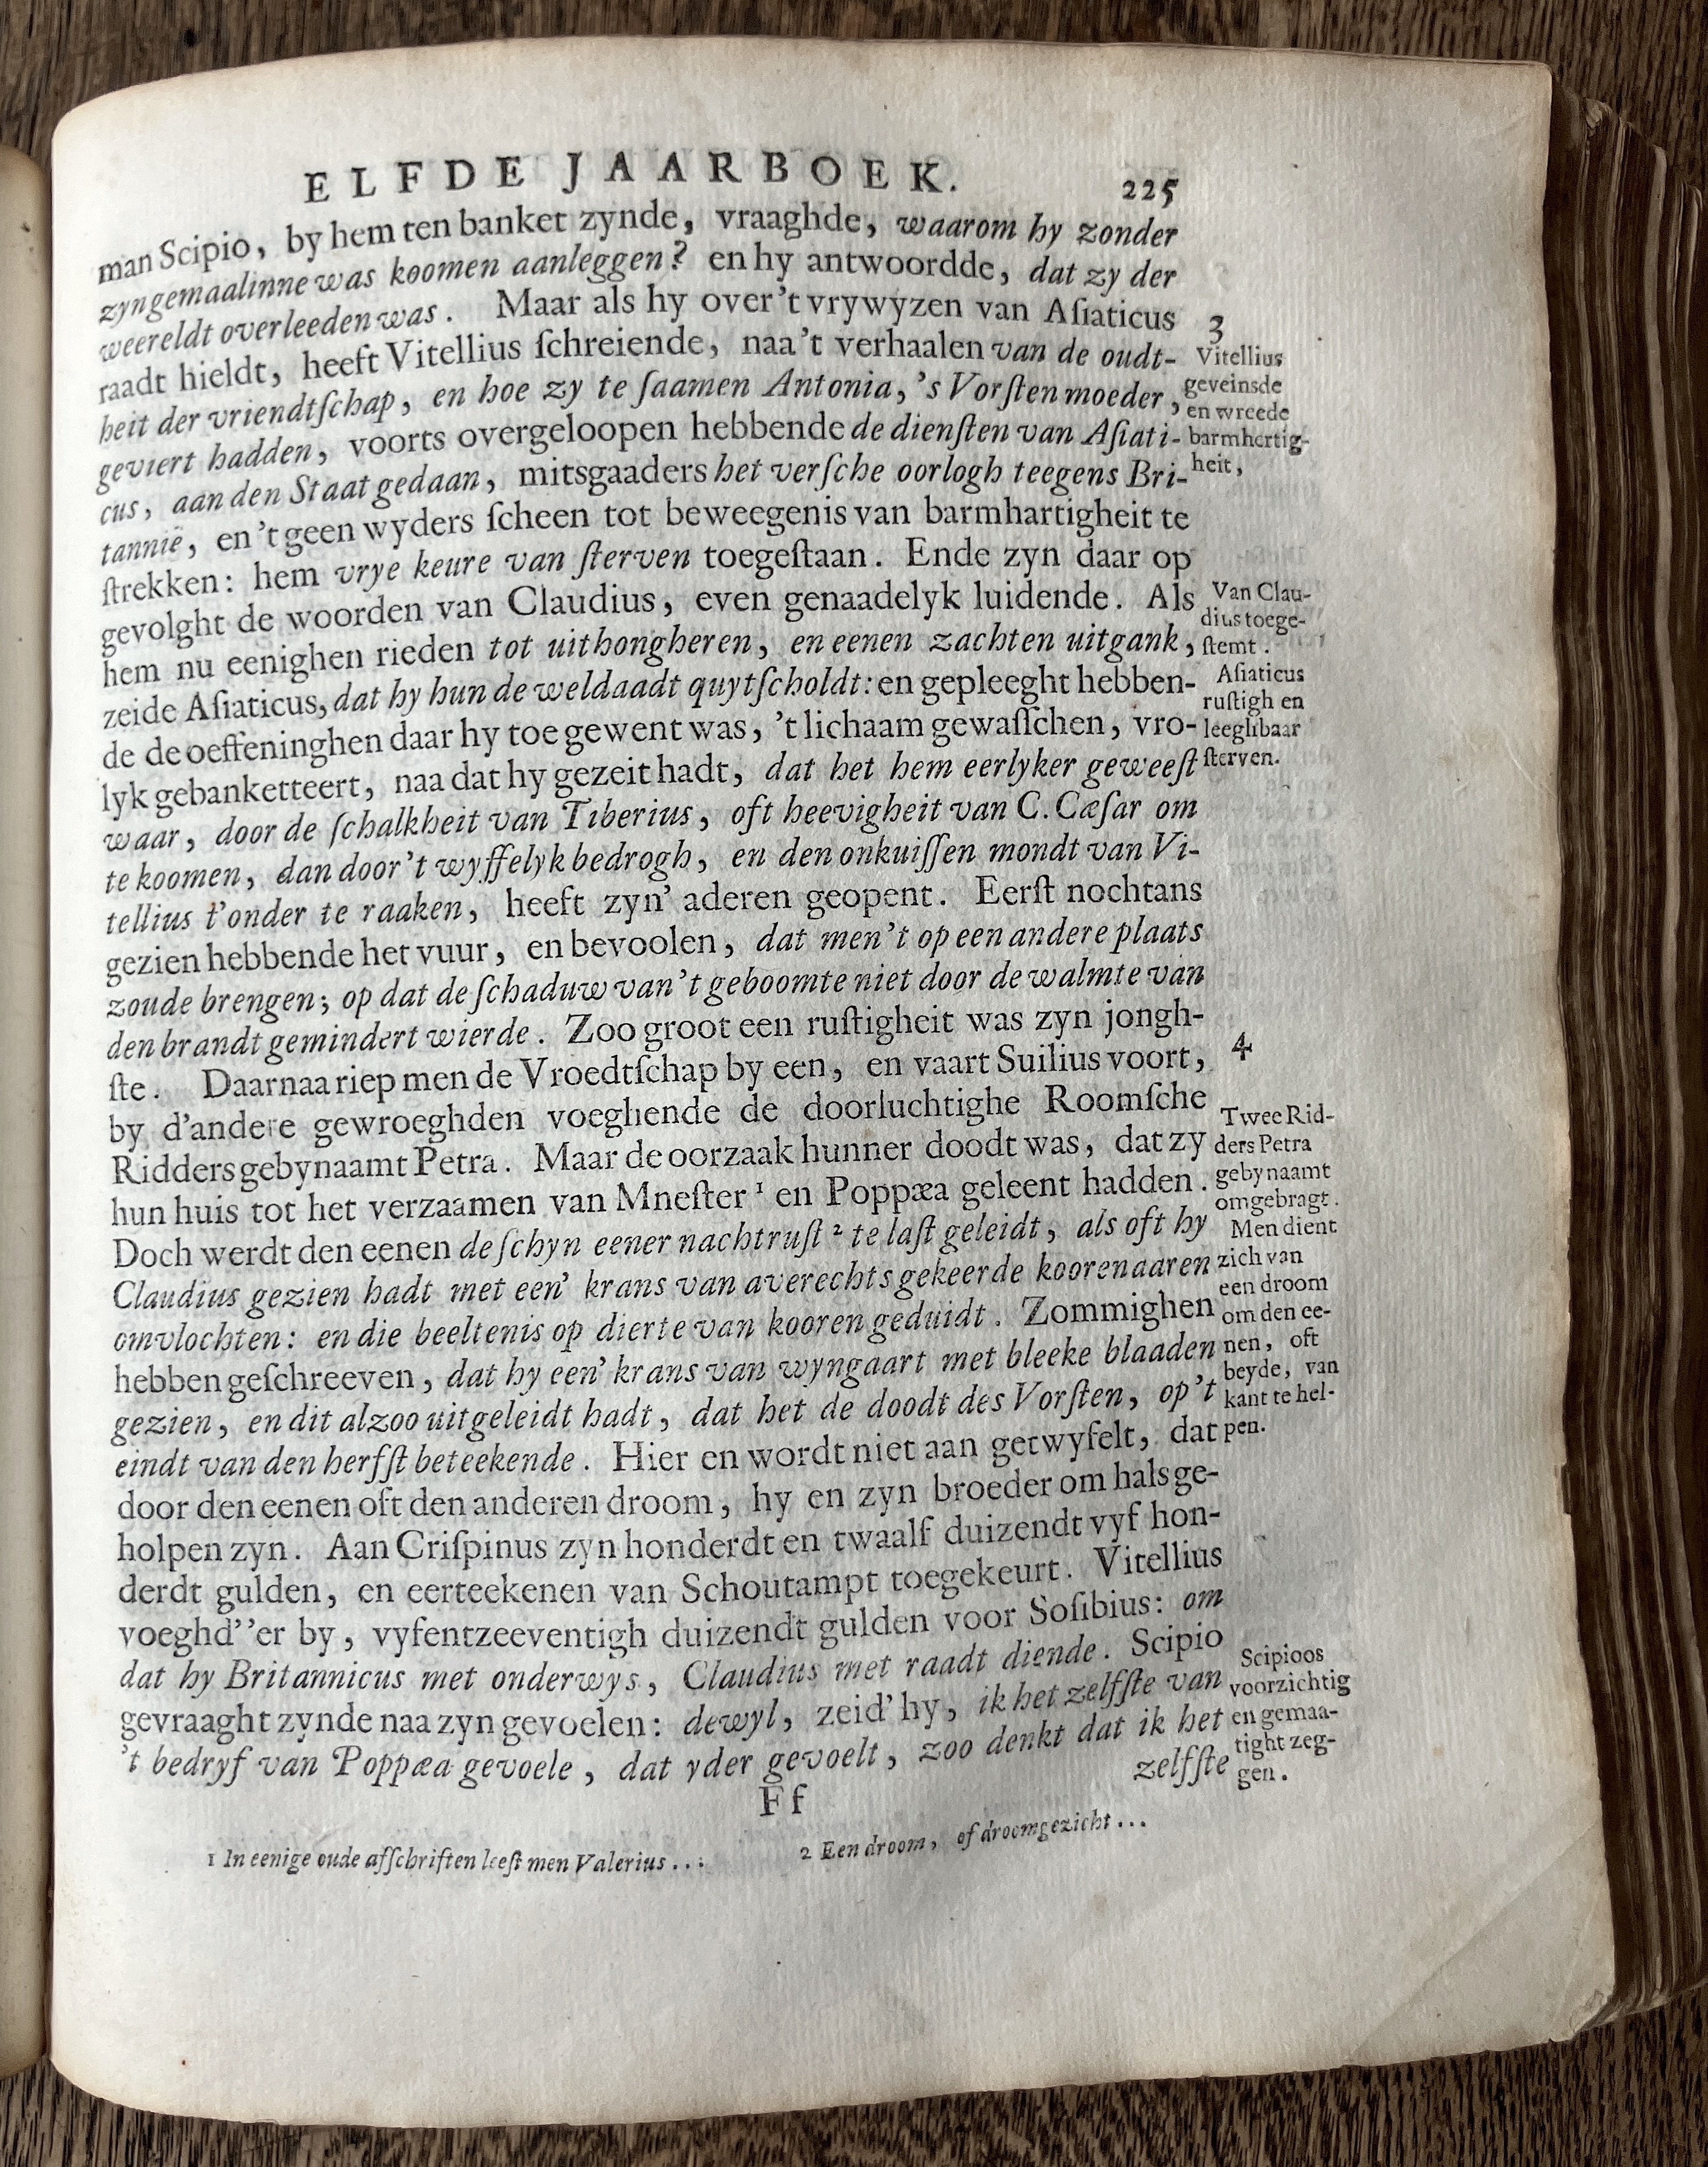 ELFDE JAARBOEK. 225
man Scipio, by hem ten banket zynde, vraaghde, waarom hy zonder
zyn gemaalinne was koomen aanleggen? en hy antwoordde, dat zy der
weereldt overleeden was. Maar als hy over 't vrywyzen van Aſiaticus
raadt hieldt, heeft Vitellius ſchreiende, naa 't verhaalen van de oudt-
heit der vriendtſchap, en hoe zy te ſaamen Antonia, 's Vorſten moeder,
geviert hadden, voorts overgeloopen hebbende de dienſten van Aſiati-
cus, aan den Staat gedaan, mitsgaaders het verſche oorlogh teegens Bri-
tannië, en 't geen wyders ſcheen tot beweegenis van barmhartigheit te
ſtrekken: hem vrye keure van ſterven toegeſtaan. Ende zyn daar op
gevolght de woorden van Claudius, even genaadelyk luidende. Als
hem nu eenighen rieden tot uithongheren, en eenen zachten uitgank,
zeide Aſiaticus, dat hy hun de weldaadt quytſcholdt: en gepleeght hebben-
de de oeffeninghen daar hy toe gewent was, 't lichaam gewaſſchen, vro-
lyk gebanketteert, naa dat hy gezeit hadt, dat het hem eerlyker geweeſt
waar, door de ſchalkheit van Tiberius, oft heevigheit van C. Cæſar om
te koomen, dan door 't wyffelyk bedrogh, en den onkuiſſen mondt van Vi-
tellius t'onder te raaken, heeft zyn' aderen geopent. Eerſt nochtans
gezien hebbende het vuur, en bevoolen, dat men 't op een andere plaats
zoude brengen; op dat de ſchaduw van 't geboomte niet door de walmte van
den brandt gemindert wierde. Zoo groot een ruſtigheit was zyn jongh-
ſte. Daarnaa riep men de Vroedtſchap by een, en vaart Suilius voort,
by d'andere gewroeghden voeghende de doorluchtighe Roomſche
Ridders gebynaamt Petra. Maar de oorzaak hunner doodt was, dat zy
hun huis tot het verzaamen van Mneſter 1 en Poppæa geleent hadden.
Doch werdt den eenen de ſchyn eener nachtruſt 2 te laſt geleidt, als oft hy
Claudius gezien hadt met een' krans van averechts gekeerde koorenaaren
omvlochten: en die beeltenis op dierte van kooren geduidt. Zommighen
hebben geſchreeven, dat hy een' krans van wyngaart met bleeke blaaden
gezien, en dit alzoo uitgeleidt hadt, dat het de doodt des Vorſten, op 't
eindt van den herfſt beteekende. Hier en wordt niet aan getwyfelt, dat
door den eenen oft den anderen droom, hy en zyn broeder om hals ge-
holpen zyn. Aan Criſpinus zyn honderdt en twaalf duizendt vyf hon-
derdt gulden, en eerteekenen van Schoutampt toegekeurt. Vitellius
voeghd''er by, vyfentzeeventigh duizendt gulden voor Soſibius: om
dat hy Britannicus met onderwys, Claudius met raadt diende. Scipio
gevraaght zynde naa zyn gevoelen: dewyl, zeid' hy, ik het zelfſte van
't bedryf van Poppæa gevoele, dat yder gevoelt, zoo denkt dat ik het
zelfſte
Ff
3
Vitellius
geveinsde
en wreede
barmhertig-
heit,
Van Clau-
dius toege-
ſtemt.
Aſiaticus
ruſtigh en
leeghbaar
ſterven.
4
Twee Rid-
ders Petra
gebynaamt
omgebragt.
Men dient
zich van
een droom
om den ee-
nen, oft
beyde, van
kant te hel-
pen.
Scipioos
voorzichtig
en gemaa-
tight zeg-
gen.
1 In eenige oude afſchriften leeſt men Valerius...
2 Een droom, of droomgezicht...